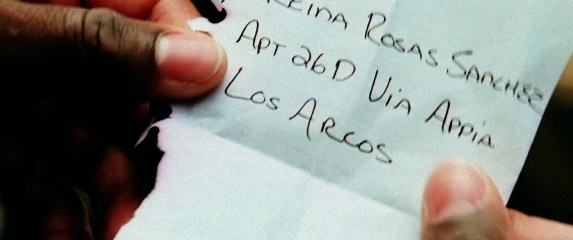 REINA ROSAS SANCHEZ
APT 26D VIA APPIA
LOS ARCOS